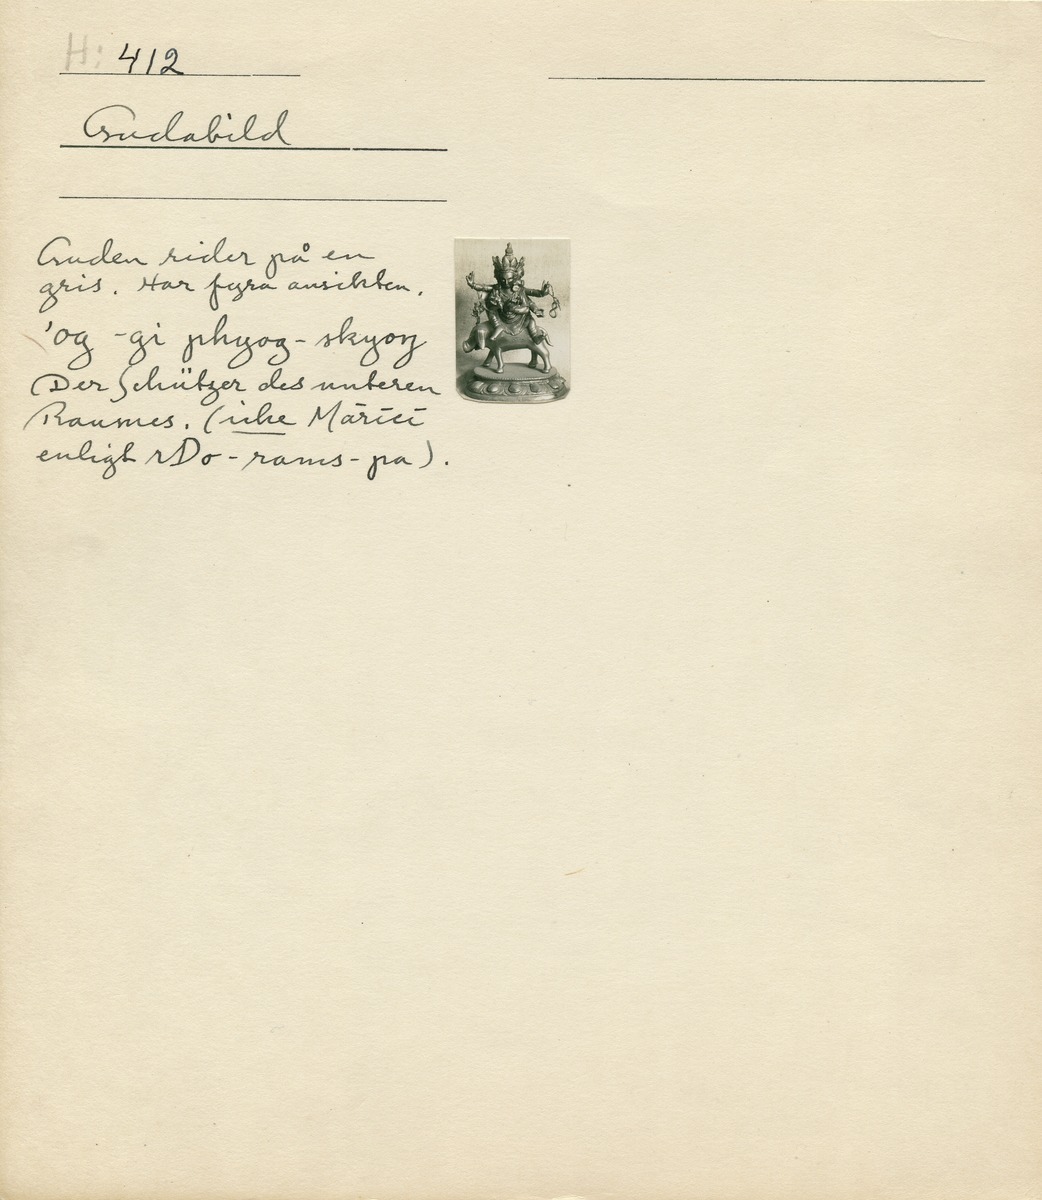 H: 412
Gudabild
Guden rider på en
gris. Har fyra ansikten.
'og-gi phyog-skyoṅ
Der Schützer des unteren
Raumes. (icke Mārīcī
enligt rDo-rams-pa).